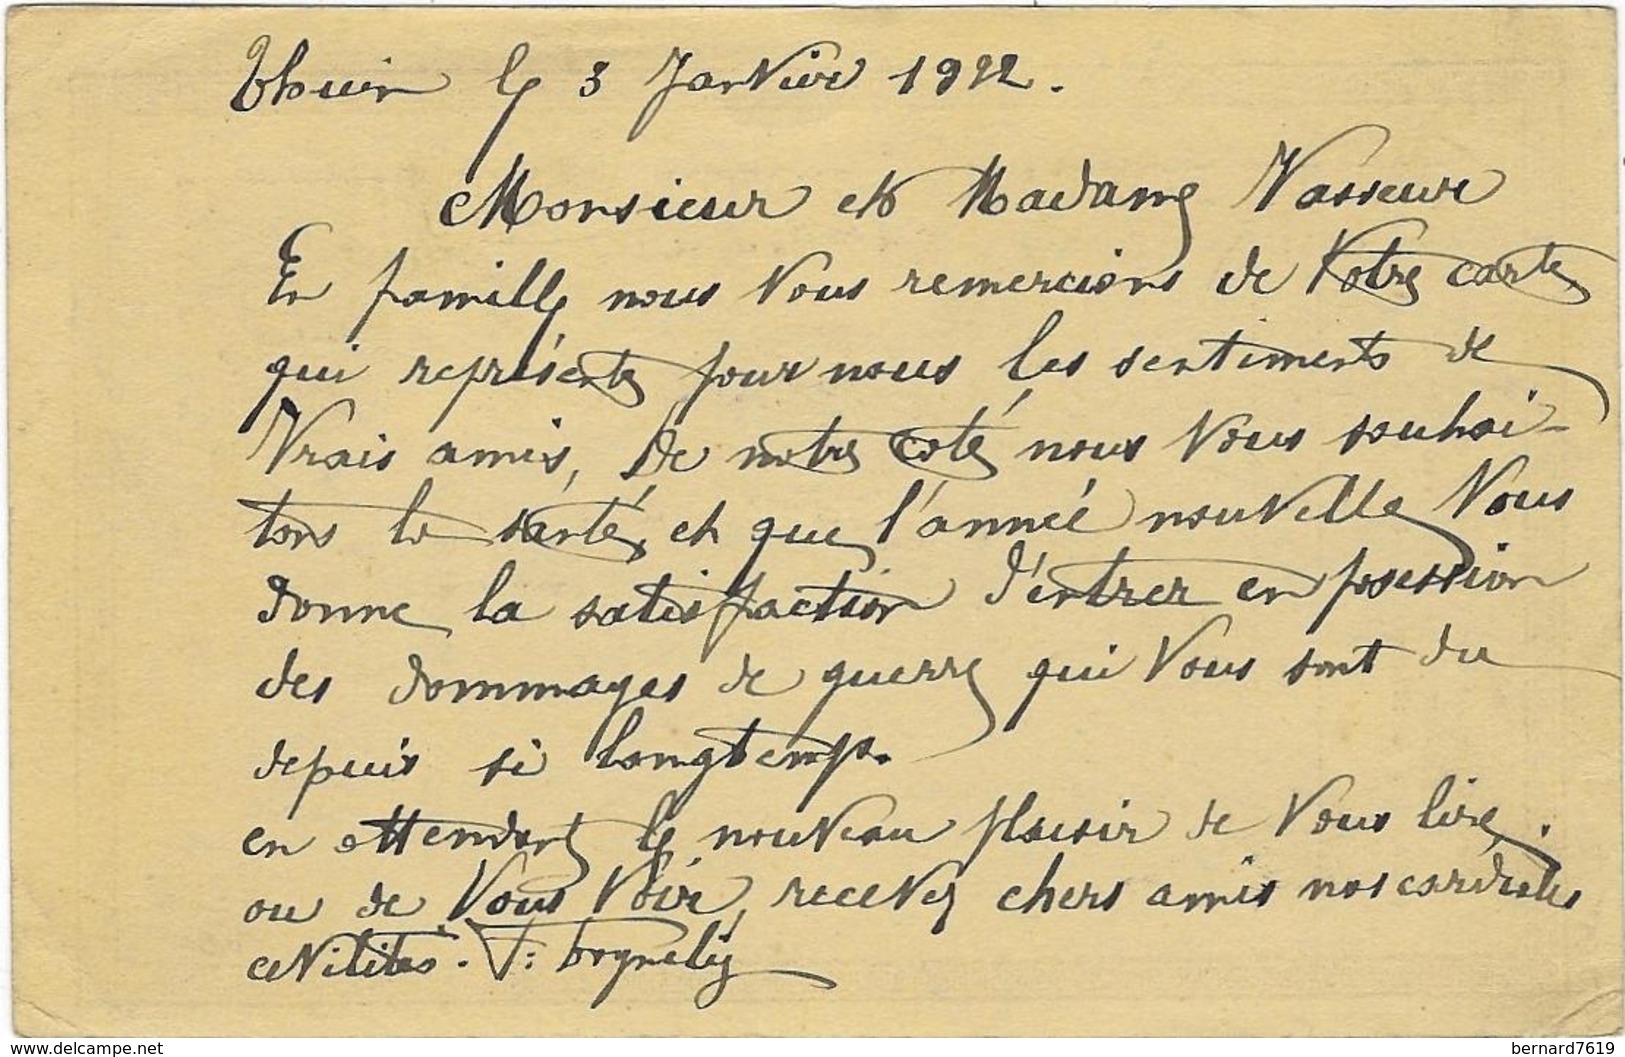 Thuin le 3 Janvier 1922.
Monsieur et Madame Vasseur
En famille nous Vous remercions de Votre carte
qui représente pour nous les sentiments de
Vrais amis, De notre coté nous Vous souhai-
tons la santé, et que l'année nouvelle Vous
donne la satisfaction d'entrer en posession
des dommages de guerre qui Vous sont du
depuis si longtemp.
en attendant le nouveau plaisir de Vous lire,
ou de Vous Voir, recevez chers amis nos cordiales
civilités.
www.delcampe.net
bernard7619